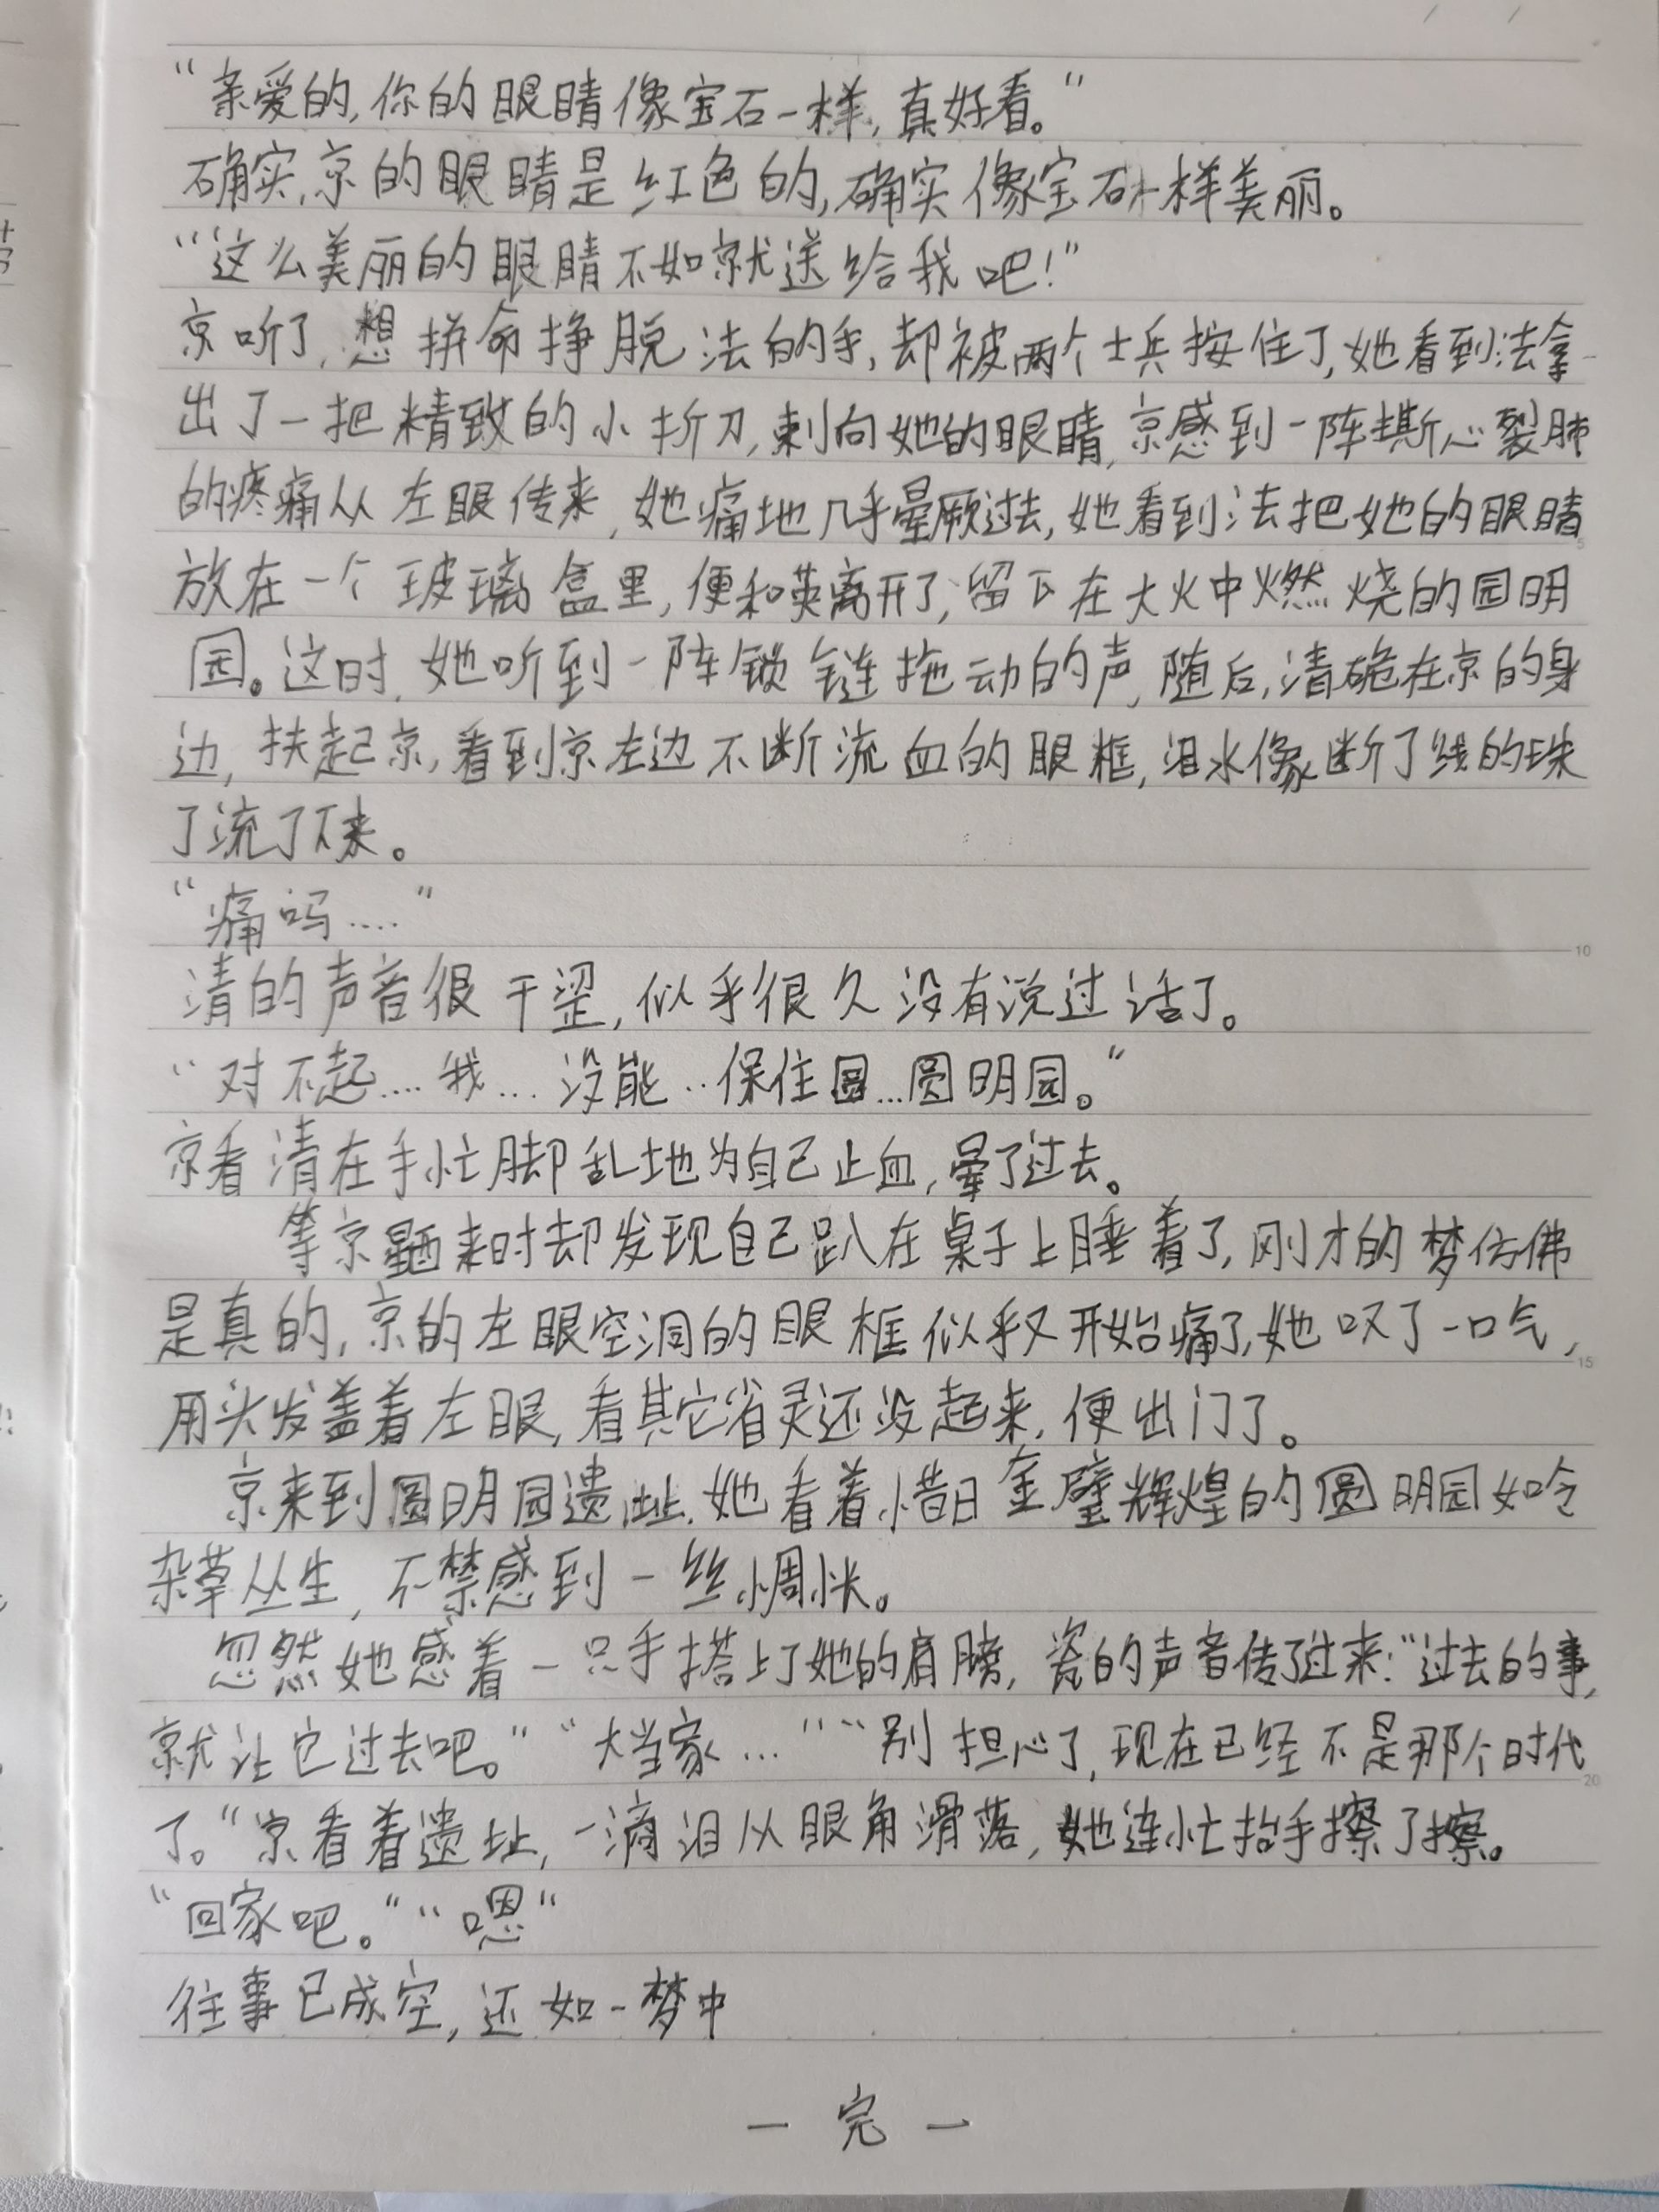 “亲爱的,你的眼睛像宝石一样,真好看。”
确实,京的眼睛是红色的,确实像宝石一样美丽。
“这么美丽的眼睛不如就送给我吧!”
京听了,想拼命挣脱法的手,却被两个士兵按住了,她看到法拿
出了一把精致的小折刀,刺向她的眼睛,京感到一阵撕心裂肺
的疼痛从左眼传来,她痛地几乎晕厥过去,她看到法把她的眼睛
放在一个玻璃盒里,便和英离开了,留下在大火中燃烧的园明
园。这时,她听到一阵锁链拖动的声,随后,清跪在京的身
边,扶起京,看到京左边不断流血的眼框,泪水像断了线的珠
了流了下来。
“痛吗....”
清的声音很干涩,似乎很久没有说过话了。
“对不起....我...没能..保住圆...圆明园。”
京看清在手忙脚乱地为自己止血,晕了过去。
等京醒来时却发现自己趴在桌子上睡着了,刚才的梦仿佛
是真的,京的左眼空洞的眼框似乎又开始痛了,她叹了一口气,
用头发盖着左眼,看其它省灵还没起来,便出门了。
京来到圆明园遗址,她看着惜日金璧辉煌的圆明园如今
杂草丛生,不禁感到一丝惆怅。
忽然她感着一只手搭上了她的肩膀,瓷的声音传了过来:“过去的事,
就让它过去吧。”“大当家...”“别担心了,现在已经不是那个时代
了。”京看着遗址,一滴泪从眼角滑落,她连忙抬手擦了擦。
“回家吧。”“嗯”
往事已成空,还如一梦中
一 完 一